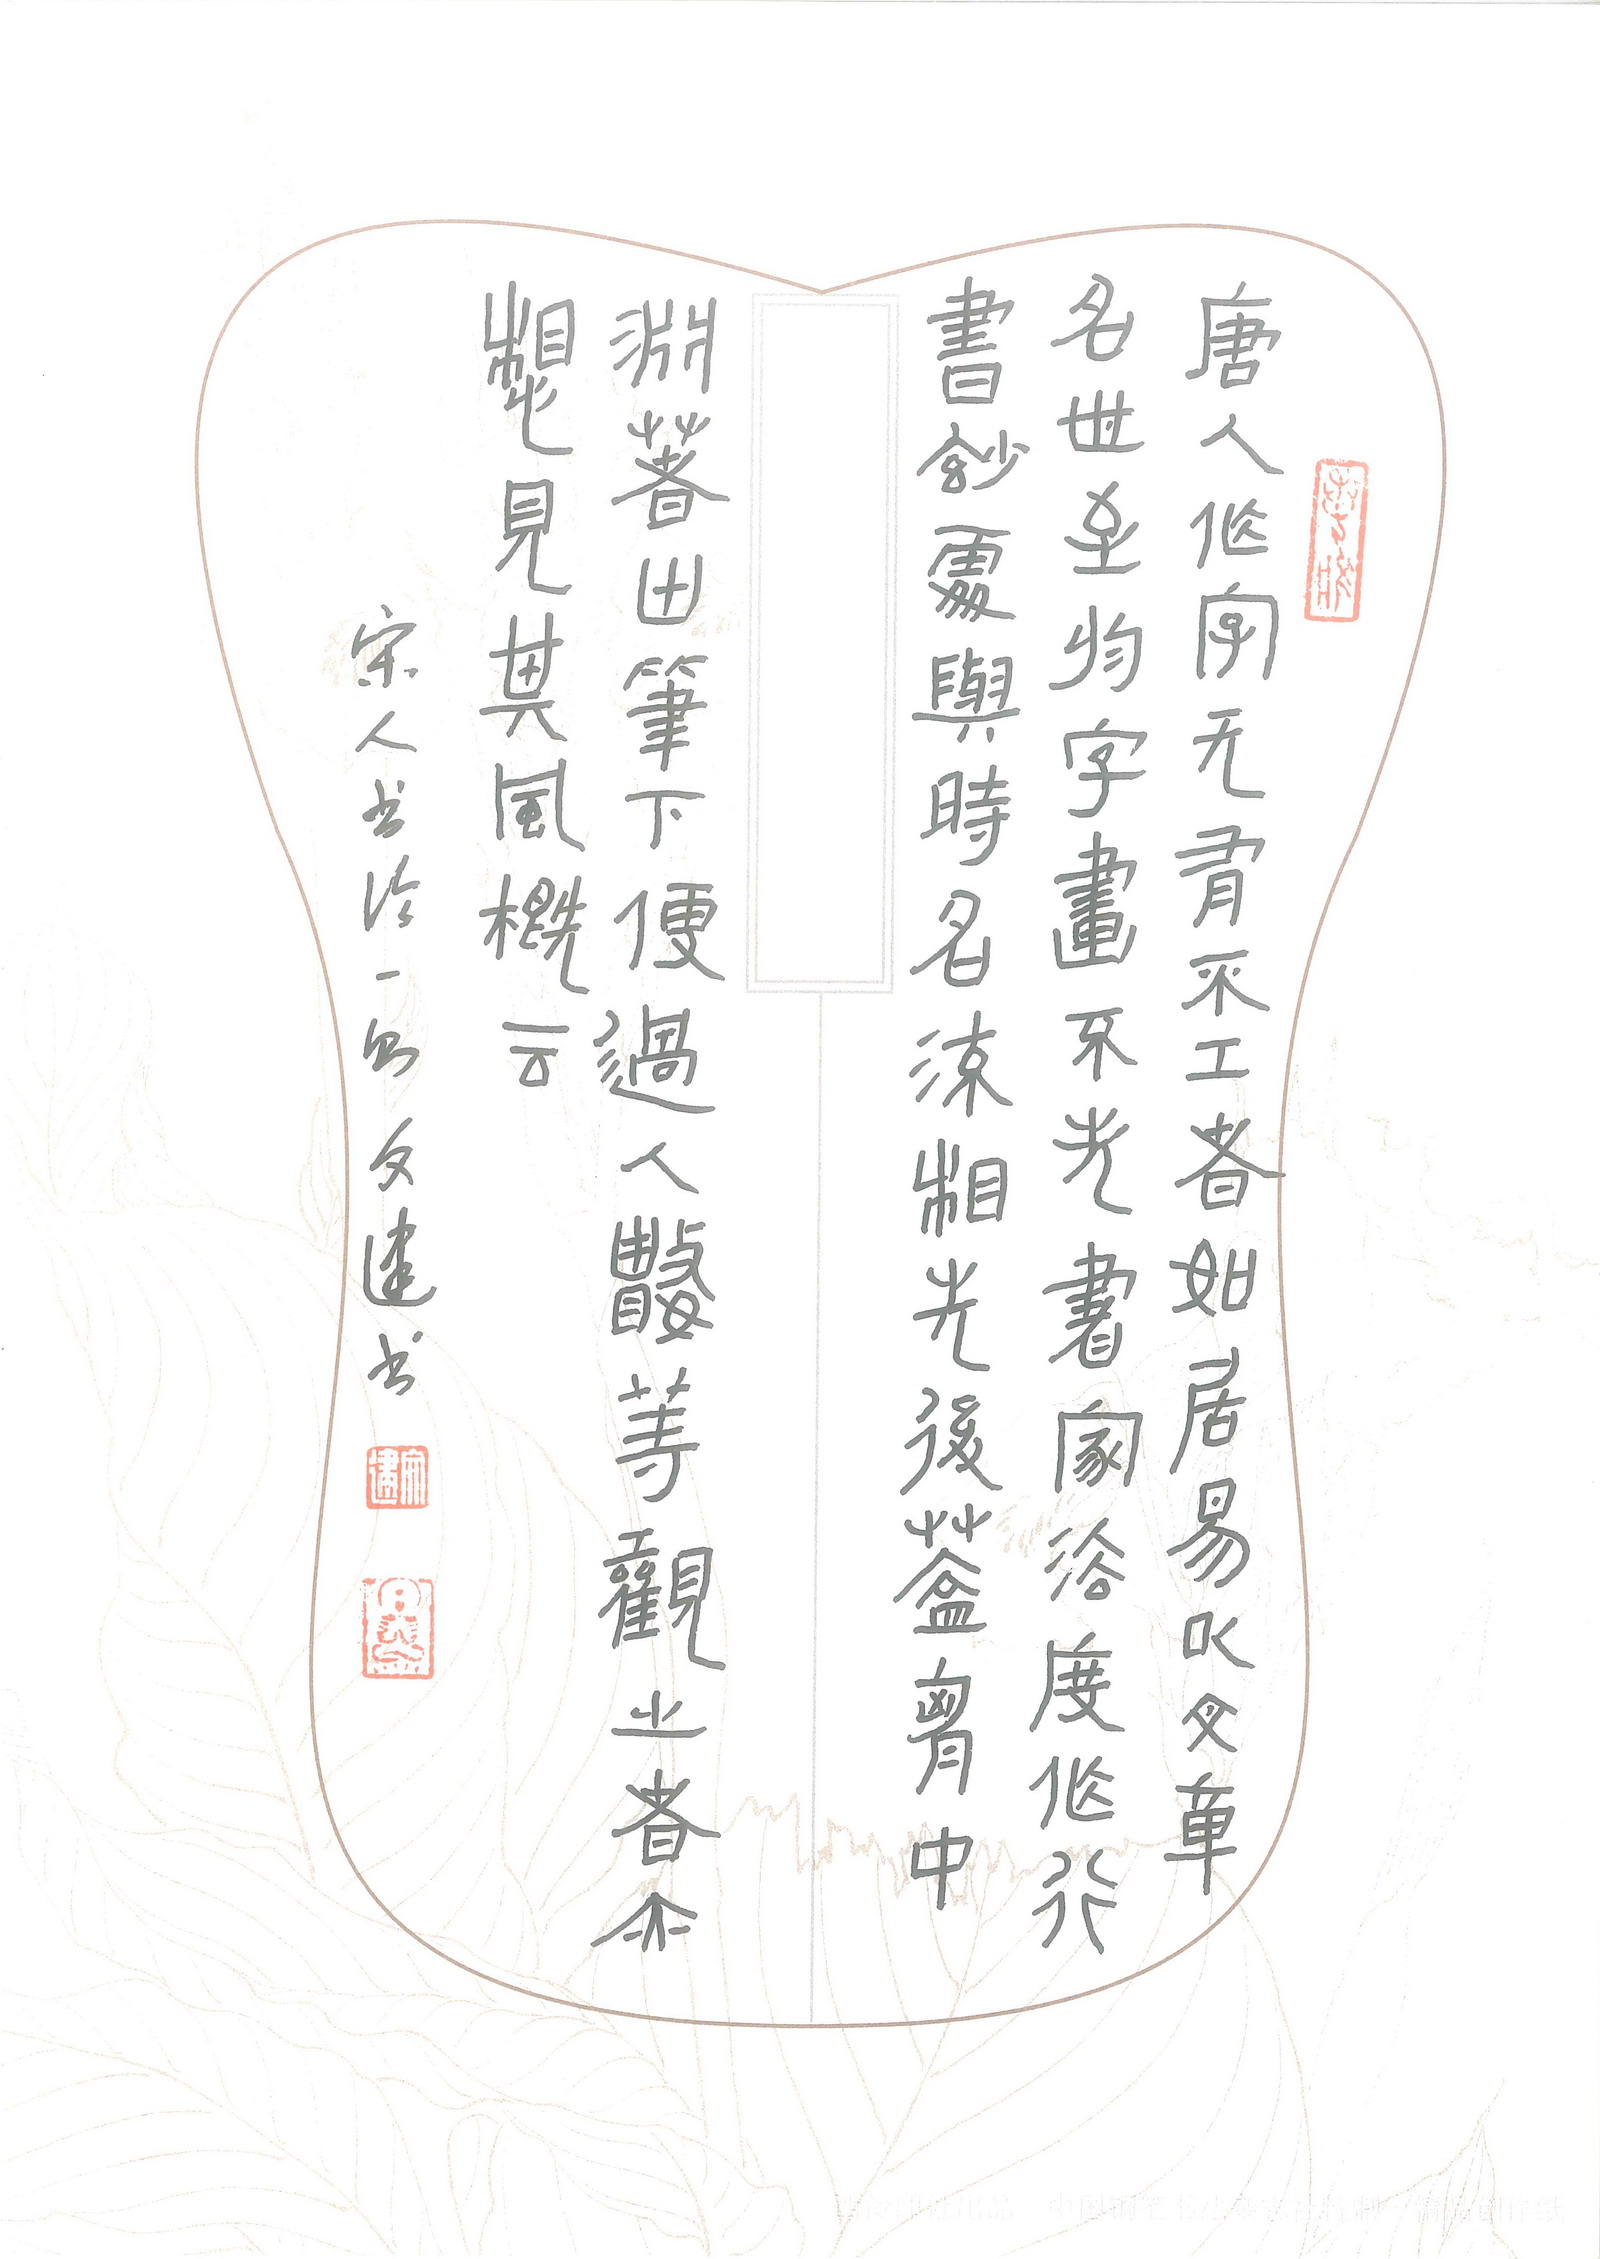 唐人作字无有不工者如居易以文章
名世至於字畫不失書家法度作行
書妙處與時名流相先後蓋胸中
淵著出筆下便過人數等觀之者亦
想見其風概云
宋人书论一则文建书
文建